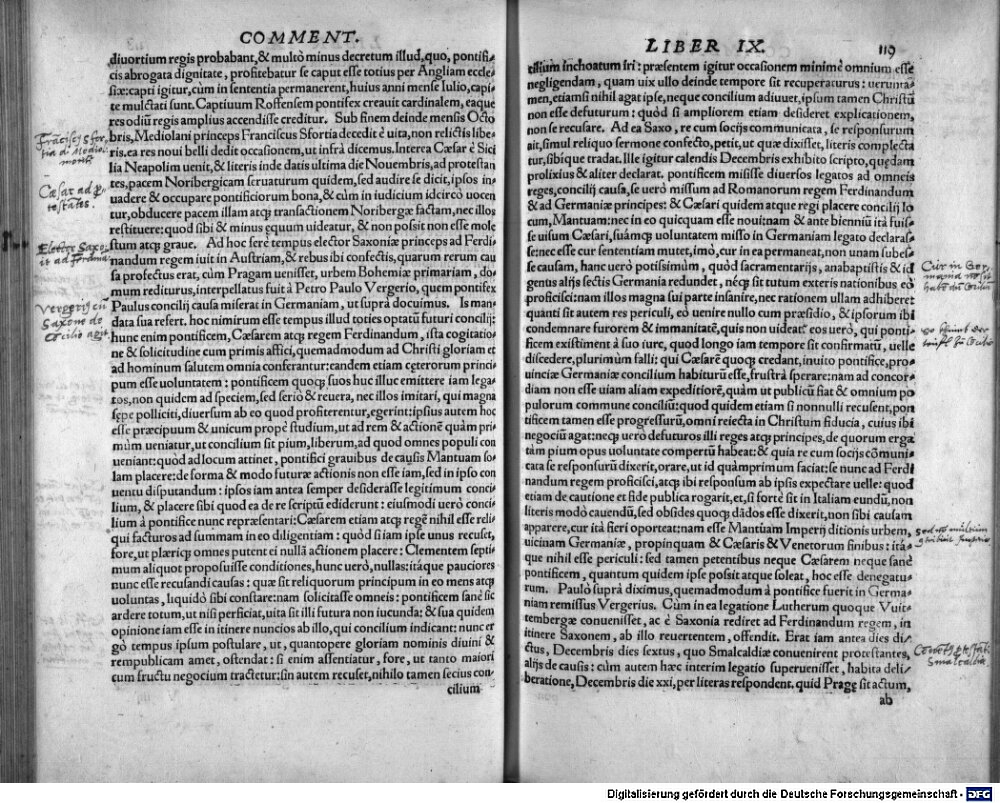 COMMENT.
diuortium regis probabant, & multò minus decretum illud, quo, pontifi-
cis abrogata dignitate, profitebatur se caput esse totius per Angliam eccle-
siæ: capti igitur, cùm in sententia permanerent, huius anni mense Iulio, capi-
te mulctati sunt. Captiuum Roffensem pontifex creauit cardinalem, eaque
res odiũ regis amplius accendisse creditur. Sub finem deinde mensis Octo
bris, Mediolani princeps Franciscus Sfortia decedit è uita, non relictis libe-
ris. ea res noui belli dedit occasionem, ut infrà dicemus. Interea Cæsar è Sici
lia Neapolim uenit, & literis inde datis ultima die Nouembris, ad protestan
tes, pacem Noribergicam seruaturum quidem, sed audire se dicit, ipsos in-
uadere & occupare pontificiorum bona, & cùm in iudicium idcircò uocen
tur, obducere pacem illam atq; transactionem Noribergæ factam, nec illos
restituere: quod sibi & minus ęquum uideatur, & non possit non esse mole
stum atque graue. Ad hoc ferè tempus elector Saxoniæ princeps ad Ferdi-
nandum regem iuit in Austriam, & rebus ibi confectis, quarum rerum cau
sa profectus erat, cùm Pragam uenisset, urbem Bohemiæ primariam, do-
mum rediturus, interpellatus fuit à Petro Paulo Vergerio, quem pontifex
Paulus concilij causa miserat in Germaniam, ut suprà docuimus. Is man-
data sua refert. hoc nimirum esse tempus illud toties optatũ futuri concilij:
hunc enim pontificem, Cæsarem atq; regem Ferdinandum, ista cogitatio
ne & solicitudine cum primis affici, quemadmodum ad Christi gloriam et
ad hominum salutem omnia conferantur: eandem etiam cęterorum princi-
pum esse uoluntatem: pontificem quoq; suos huc illuc emittere iam lega-
tos, non quidem ad speciem, sed seriò & reuera, nec illos imitari, qui magna
sępe polliciti, diuersum ab eo quod profiterentur, egerint: ipsius autem hoc
esse præcipuum & unicum propè studium, ut ad rem & actionē quàm pri-
mùm ueniatur, ut concilium sit pium, liberum, ad quod omnes populi con
ueniant: quòd ad locum attinet, pontifici grauibus de causis Mantuam so-
lam placere: de forma & modo futuræ actionis non esse iam, sed in ipso con
uentu disputandum: ipsos iam antea semper desiderasse legitimum conci-
lium, & placere sibi quod ea de re scriptũ ediderunt: eiusmodi uerò conci-
lium à pontifice nunc repræsentari: Cæsarem etiam atq; regē nihil esse reli-
qui facturos ad summam in eo diligentiam: quòd si iam ipse unus recuset,
fore, ut plæriq; omnes putent ei nullã actionem placere: Clementem septi-
mum aliquot proposuisse conditiones, hunc uerò, nullas: itáque pauciores
nunc esse recusandi causas: quæ sit reliquorum principum in eo mens atq;
uoluntas, liquidò sibi constare: nam solicitasse omneis: pontificem sanè sic
ardere totum, ut nisi perficiat, uita sit illi futura non iucunda: & sua quidem
opinione iam esse in itinere nuncios ab illo, qui concilium indicant: nunc er
gò tempus ipsum postulare, ut, quantopere gloriam nominis diuini &
rempublicam amet, ostendat: si enim assentiatur, fore, ut tanto maiori
cum fructu negocium tractetur: sin autem recuset, nihilo tamen secius con-
cilium
Cæsar ad p-
testates.
Elector Saxo-
Vergerij cũ
Saxone de
LIBER IX.
119
cilium inchoatum iri: præsentem igitur occasionem minimè omnium esse
negligendam, quam uix ullo deinde tempore sit recuperaturus: uerunta-
men, etiamsi nihil agat ipse, neque concilium adiuuet, ipsum tamen Christũ
non esse defuturum: quòd si ampliorem etiam desideret explicationem,
non se recusare. Ad ea Saxo, re cum socijs communicata, se responsurum
ait, simul reliquo sermone confecto, petit, ut quæ dixisset, literis complecta
tur, sibique tradat. Ille igitur calendis Decembris exhibito scripto, quędam
prolixius & aliter declarat. pontificem misisse diuersos legatos ad omneis
reges, concilij causa, se uerò missum ad Romanorum regem Ferdinandum
& ad Germaniæ principes: & Cæsari quidem atque regi placere concilij lo
cum, Mantuam: nec in eo quicquam esse noui: nam & ante bienniũ ità fuis-
se uisum Cæsari, suámq; uoluntatem misso in Germaniam legato declaras-
se: nec esse cur sententiam mutet, imò, cur in ea permaneat, non unam subes-
se causam, hanc uerò potissimùm, quòd sacramentarijs, anabaptistis & id
genus alijs sectis Germania redundet, néq; sit tutum exteris nationibus eò
proficisci: nam illos magna sui parte insanire, nec rationem ullam adhiberet
quanti sit autem res periculi, eò uenire nullo cum præsidio, & ipsorum ibi
condemnare furorem & immanitatē, quis non uideat? eos uerò, qui ponti-
ficem existiment à suo iure, quod longo iam tempore sit confirmatũ, uelle
discedere, plurimùm falli: qui Cæsarē quoq; credant, inuito pontifice, pro-
uinciæ Germaniæ concilium habiturũ esse, frustrà sperare: nam ad concor-
diam non esse uiam aliam expeditiorē, quàm ut publicũ fiat & omnium po
pulorum commune conciliũ: quod quidem etiam si nonnulli recusent, pon
tificem tamen esse progressurũ, omni reiecta in Christum fiducia, cuius ibi
negociũ agat: neq; uerò defuturos illi reges atq; principes, de quorum erga
tàm pium opus uoluntate compertũ habeat: & quia re cum socijs cõmuni-
cata se responsurũ dixerit, orare, ut id quàmprimum faciat: se nunc ad Ferdi
nandum regem proficisci, atq; ibi responsum ab ipsis expectare uelle: quod
etiam de cautione et fide publica rogarit, et, si fortè sit in Italiam eundũ, non
literis modò cauendũ, sed obsides quoq; dãdos esse dixerit, non sibi causam
apparere, cur ità fieri oporteat: nam esse Mantuam Imperij ditionis urbem,
uicinam Germaniæ, propinquam & Cæsaris & Venetorum finibus: itá-
que nihil esse periculi: sed tamen petentibus neque Cæsarem neque sanè
pontificem, quantum quidem ipse possit atque soleat, hoc esse denegatu-
rum. Paulò suprà diximus, quemadmodum à pontifice fuerit in Germa-
niam remissus Vergerius. Cùm in ea legatione Lutherum quoque Vuit-
tembergæ conuenisset, ac è Saxonia rediret ad Ferdinandum regem, in
itinere Saxonem, ab illo reuertentem, offendit. Erat iam antea dies di-
ctus, Decembris dies sextus, quo Smalcaldiæ conuenirent protestantes,
alijs de causis: cùm autem hæc interim legatio superuenisset, habita deli-
beratione, Decembris die xxi, per literas respondent. quid Pragę sit actum,
ab
Cur in Ger
Smalcaldiæ
Digitalisierung gefördert durch die Deutsche Forschungsgemeinschaft - DFG